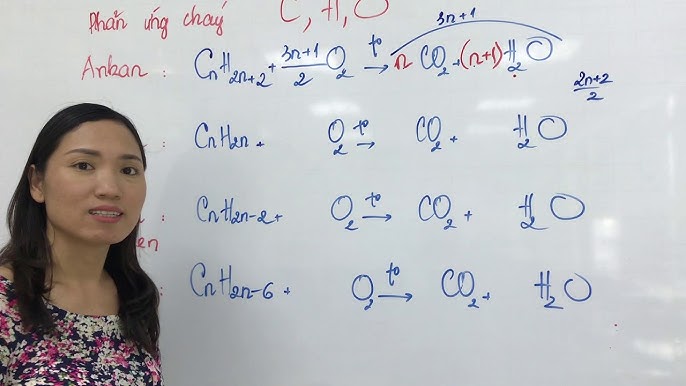 Phản ứng cháy C, H, O
3n+1
Ankan : CnH2n+2 + 3n+1/2 O2 t° → n CO2 + (n+1) H2O
2n+2/2
: CnH2n + O2 t° → CO2 + H2O
: CnH2n-2 + O2 t° → CO2 + H2O
en
: CnH2n-6 + O2 t° → CO2 + H2O